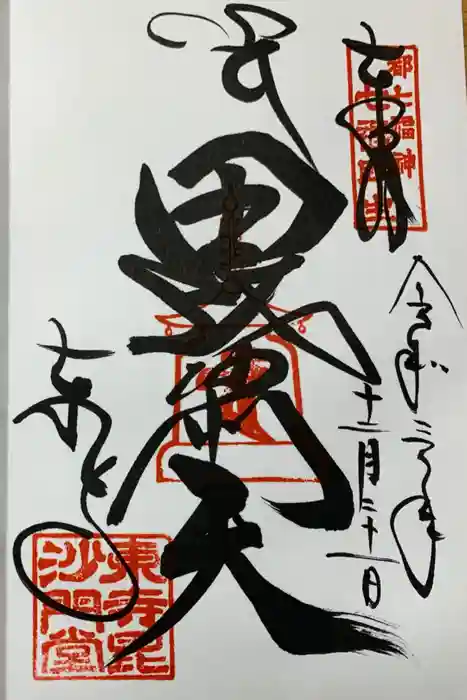 都七福神
奉拝
令和三年
十二月二十一日
毘沙門天
東寺
東寺毘
沙門堂